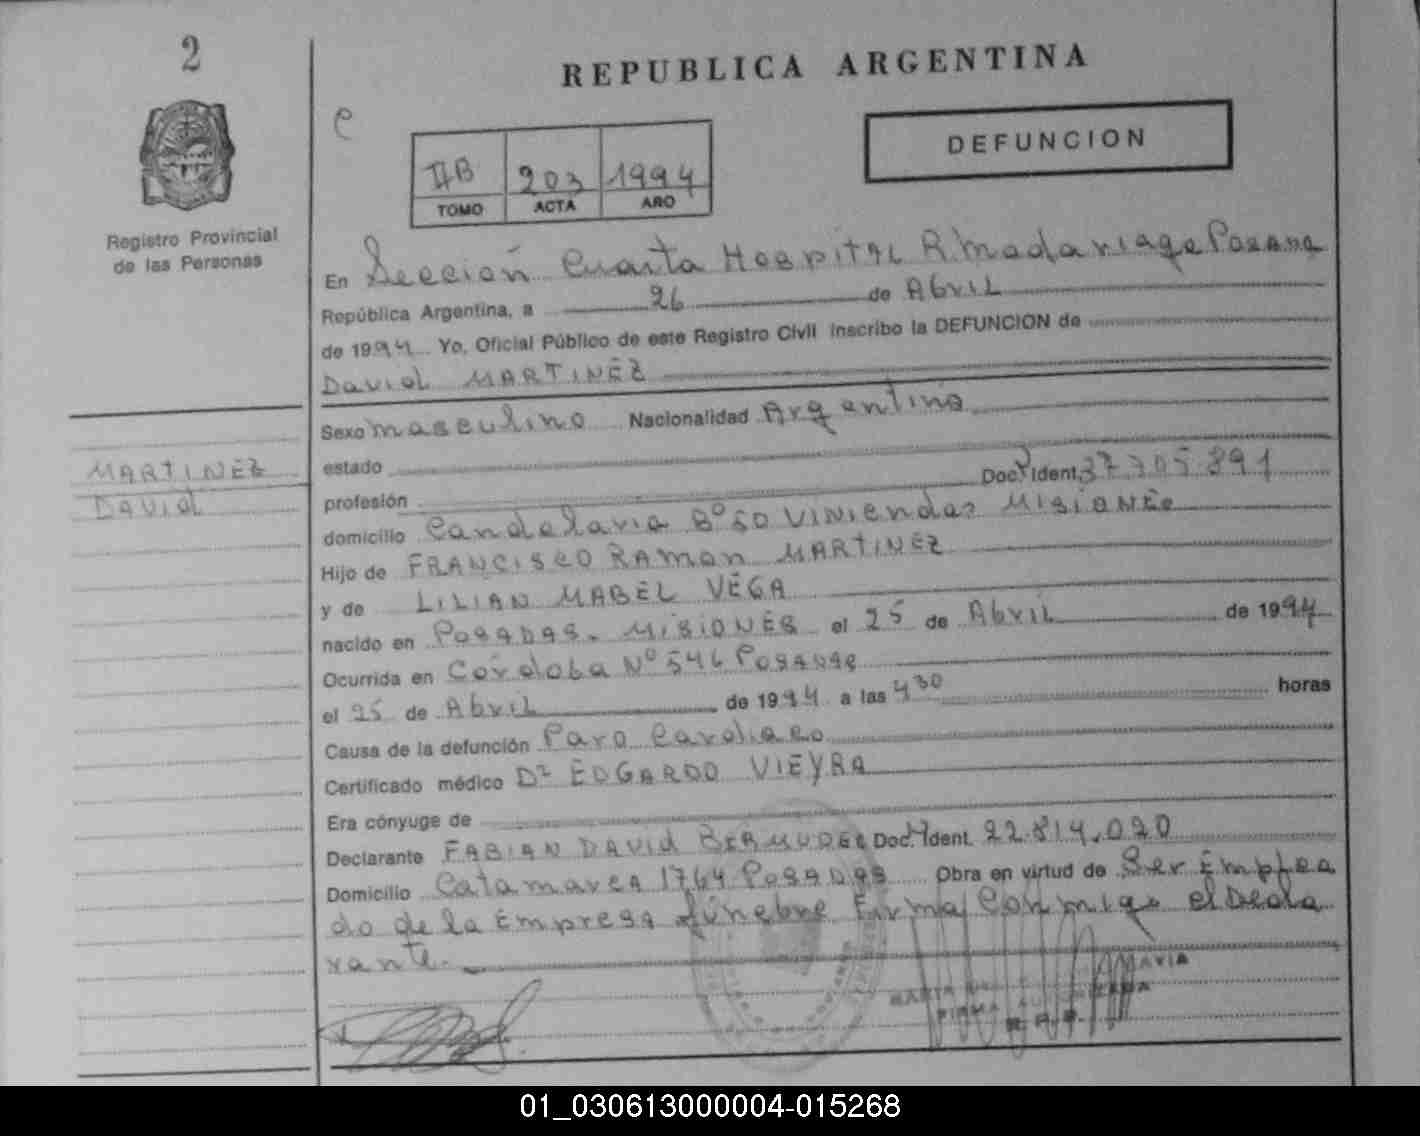 2
REPUBLICA ARGENTINA
e
DEFUNCION
IIB 203 1994
TOMO ACTA AÑO
Registro Provincial
de las Personas
En Sección Cuarta Hospital R. Madariaga Posadas
República Argentina, a 26 de Abril
de 1994 Yo, Oficial Público de este Registro Civil inscribo la DEFUNCION de
David MARTINEZ
Sexo masculino Nacionalidad Argentina
MARTINEZ
DAVID
estado
profesión Doc. Ident. 37.705.891
domicilio Candelaria B° 50 Viviendas MISIONES
Hijo de FRANCISCO RAMON MARTINEZ
y de LILIAN MABEL VEGA
nacido en POSADAS. MISIONES el 25 de Abril de 1994
Ocurrida en Córdoba N° 546 POSADAS
el 25 de Abril de 1994 a las 4 30 horas
Causa de la defunción Paro Cardiaco
Certificado médico Dr EDGARDO VIEYRA
Era cónyuge de
Declarante FABIAN DAVID BERMUDEZ Doc. Ident. 22.814.020
Domicilio Catamarca 1764 POSADAS Obra en virtud de Ser Emplea
do de la Empresa fúnebre Firma Conmigo el Decla
rante.
FIRMA
01_030613000004-015268